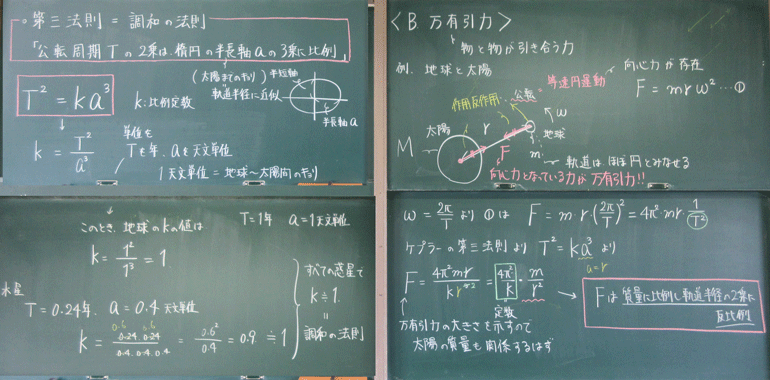 ◦第三法則 = 調和の法則
「公転周期Tの2乗は、楕円の半長軸aの3乗に比例」
(太陽までのキョリ)
半短軸
軌道半径に近似
半長軸a
T² = ka³
k:比例定数
k = T²/a³
単位を
Tを年、aを天文単位
1天文単位 = 地球〜太陽間のキョリ
このとき、地球のkの値は
T=1年 a=1天文単位
k = 1²/1³ = 1
水星
T=0.24年、a=0.4天文単位
0.6 0.6
k = 0.24 0.24/0.4・0.4・0.4 = 0.6²/0.4 = 0.9 ≒ 1
すべての惑星で
k≒1.
=
調和の法則
<B 万有引力>
物と物が引き合う力
例. 地球と太陽
向心力が存在
等速円運動
F = mrω² …①
作用反作用
公転
ω
太陽
r
地球
M
F
m
軌道はほぼ円とみなせる
向心力となっている力が万有引力!!
ω = 2π/T より ①は F = m・r・(2π/T)² = 4π²・mr・1/T²
ケプラーの第三法則より T² = ka³ より
a=r
F = 4π²mr/kr³² = 4π²/k・m/r²
定数
→ Fは質量に比例し軌道半径の2乗に
反比例
万有引力の大きさを示すので
太陽の質量も関係するはず